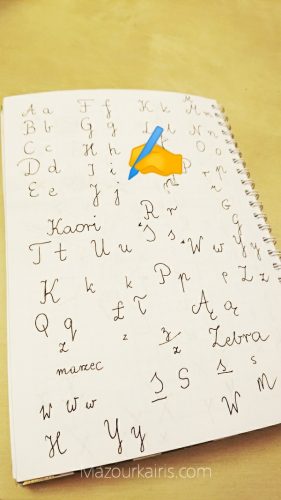 A a F f K k M
B b G g L l N n
C c H h O o
D d I i P p
E e J j r
Kaori R r G g
T t U u S s W w Y y
K k k P p p Z z
Ł T Ą ą
Q q z z
z Zebra
marzec S S s s
W W w W M
H Y y
Mazourkairis.com